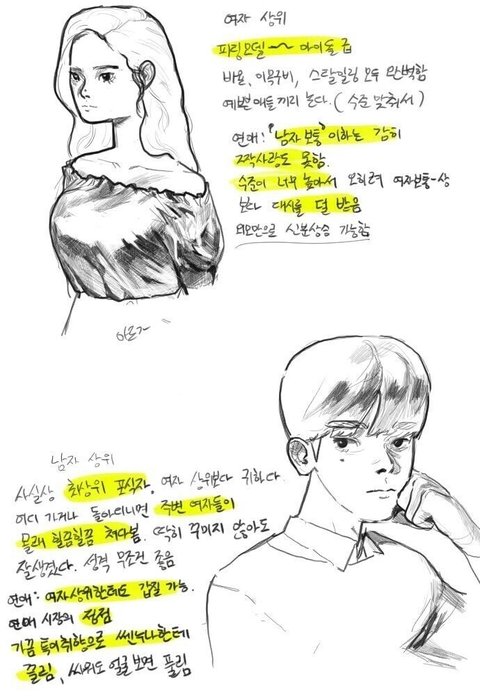 여자 상위
피팅모델 ~ 아이돌 급
비율, 이목구비, 스타일링 모두 완벽함
예쁜 애들끼리 논다. (수준 맞춰서)
연애: "남자 보통" 이하는 감히
짝사랑도 못함.
수준이 너무 높아서 오히려 여자보통-상
보다 대시를 덜 받음
외모만으로 신분상승 가능함
남자 상위
사실상 최상위 포식자. 여자 상위보다 귀하다.
어디 가거나 돌아다니면 주변 여자들이
몰래 힐끔힐끔 쳐다봄. 딱히 꾸미지 않아도
잘생겼다. 성격 무조건 좋음
연애: 여자상위한테도 갑질 가능.
연애 시장의 정점
가끔 특이취향으로 쎈누나한테
끌림, 싸워도 얼굴보면 풀림